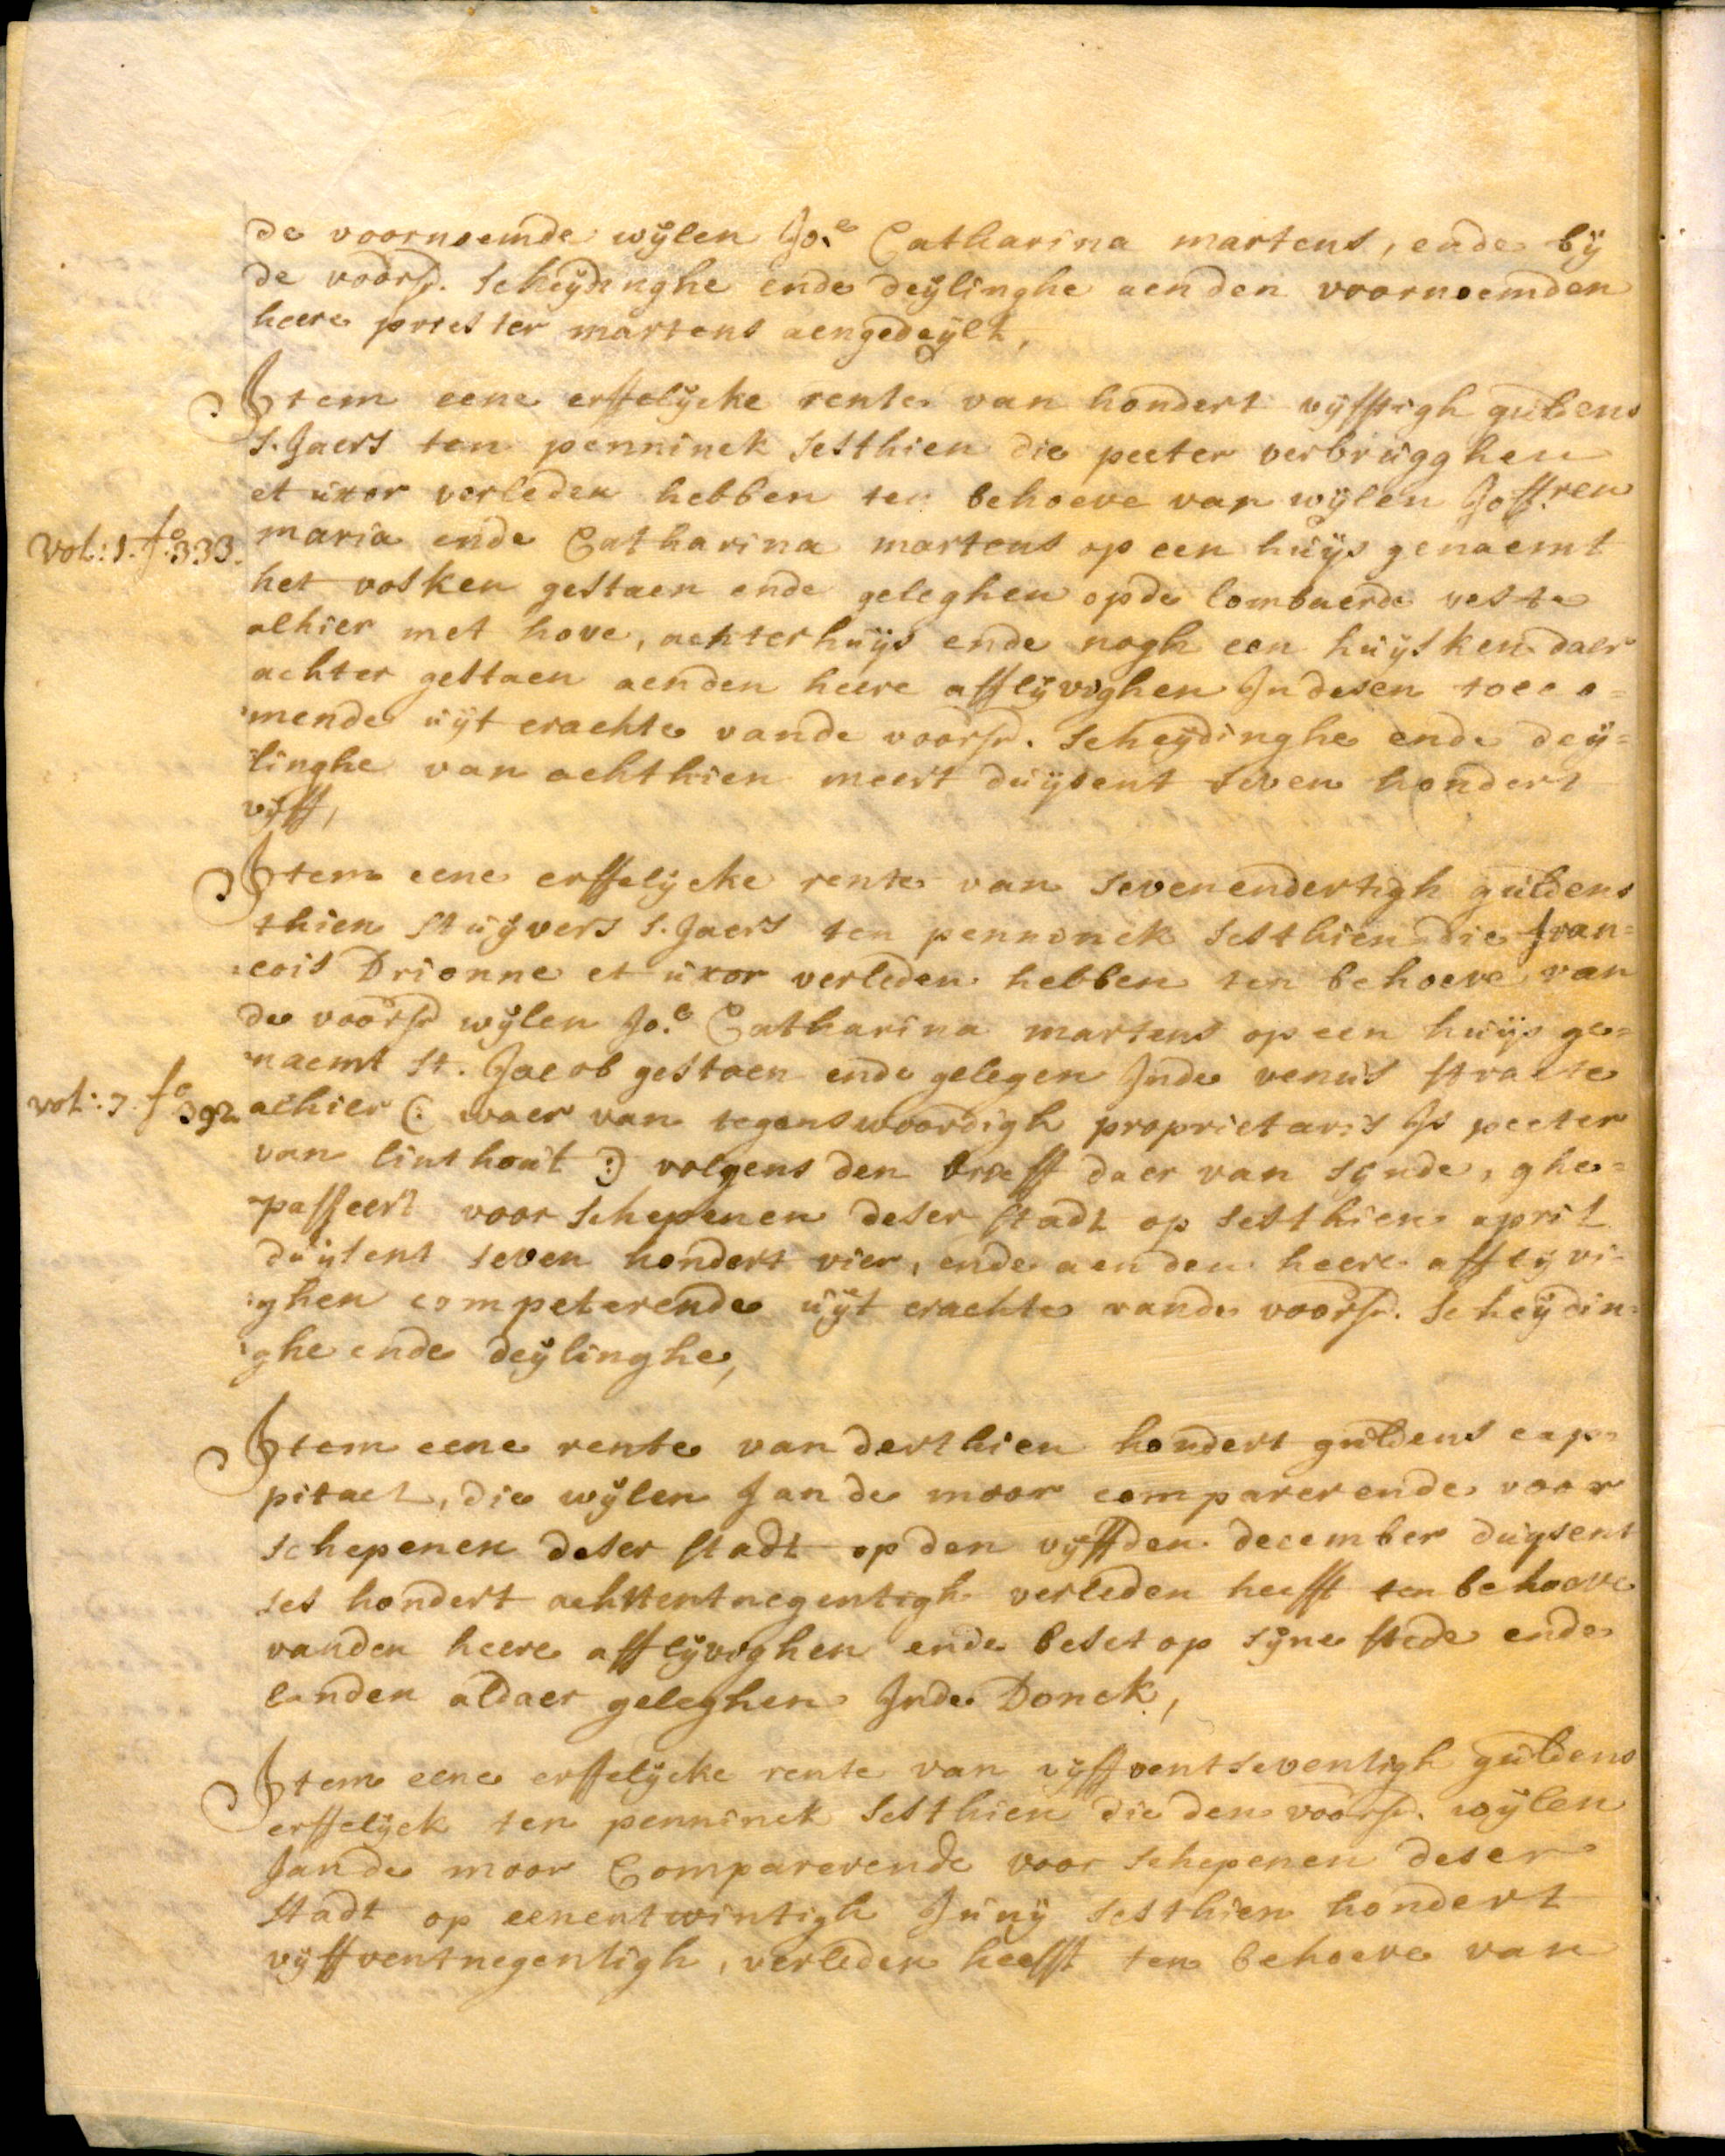 de voornoemde wijlen Jo.e Catharina martens, ende bij
de voorsr. scheijdinghe ende deijlinghe aenden voornoemden
heere priester martens aengedeijlt,
Item eene erffelijcke rente van hondert vijfftigh guldens
s.Jaers ten penninck sesthien die peeter verbrugghen
et uxor verleden hebben ten behoeve van wijlen Joff.ren
vol: 1. fo. 333.
maria ende Catharina martens op een huijs genaemt
het vosken gestaen ende geleghen opde lombaerde veste
alhier met hove, achterhuijs ende nogh een huijsken daer
achter gestaen aenden heere afflijvighen Indesen toeco=
mende uijt crachte vande voorsr. scheijdinghe ende deij=
linghe van achthien meert duijsent seven hondert
vijff,
Item eene erffelijcke rente van sevenendertigh guldens
thien stuijvers s.Jaers ten penninck sesthien die fran=
cois Drionne et uxor verleden hebben ten behoeve van
de voorsr wijlen Jo.e Catharina martens op een huijs ge=
naemt St. Jacob gestaen ende gelegen Inde venus straete
vol: 7. fo 392
alhier (: waer van tegenswoordigh proprietaris Is peeter
van linthout :) volgens den brieff daer van sijnde, ghe=
passeert voor schepenen deser stadt op sesthien april
duijsent seven hondert vier, ende aenden heere afflijvi=
ghen competerende uijt crachte vande voorsr. scheijdin=
ghe ende deijlinghe,
Item eene rente van derthien hondert guldens cap=
pitael, die wijlen Jan de moor comparerende voor
schepenen deser stadt op den vijffden december duijsent
ses hondert achttentnegentigh verleden heefft ten behoeve
vanden heere afflijvighen ende beset op sijne stede ende
landen aldaer geleghen Inde Donck,
Item eene erffelijcke rente van vijffventseventigh guldens
erffelijck ten penninck sesthien die den voorsr. wijlen
Jan de moor Comparerende voor schepenen deser
stadt op eenentwintigh Junij sesthien hondert
vijffventnegentigh, verleden heefft ten behoeve van